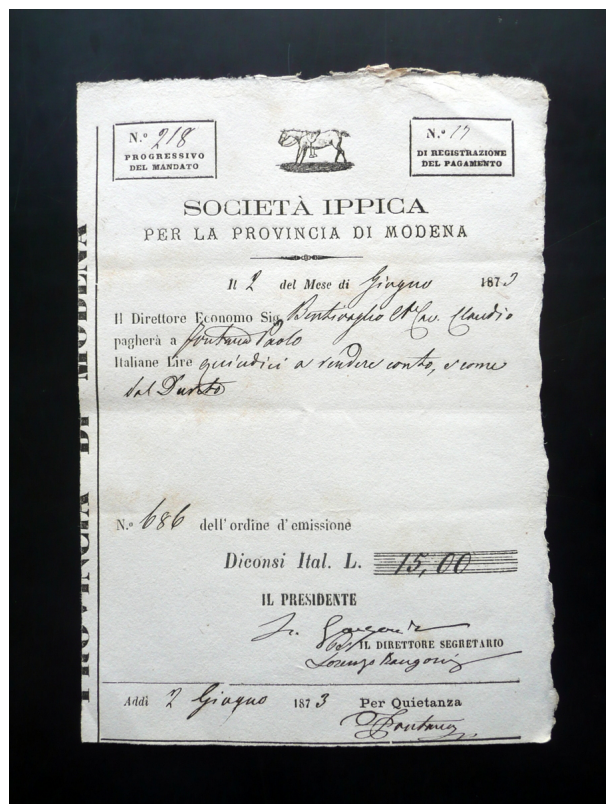 N.º 218
PROGRESSIVO
DEL MANDATO
N.º 17
DI REGISTRAZIONE
DEL PAGAMENTO
SOCIETÀ IPPICA
PER LA PROVINCIA DI MODENA
Il 2 del Mese di Giugno 1873
Il Direttore Economo Sig. Bentivoglio Cte Cav. Claudio
pagherà a Fontana Paolo
Italiane Lire quindici a rendere conto, e come
dal
N.º 686 dell'ordine d'emissione
Diconsi Ital. L. 15,00
IL PRESIDENTE
IL DIRETTORE SEGRETARIO
Lorenzo Rangoni
Addì 2 Giugno 1873 Per Quietanza
Fontana
PROVINCIA DI MODENA